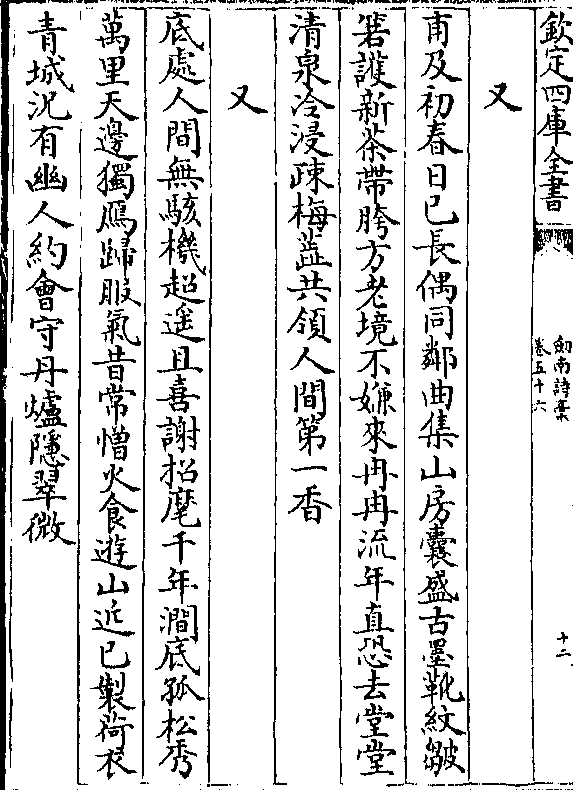 欽定四庫全書
劍南詩藁
卷五十六
十二
又
甫及初春日已長偶同鄰曲集山房囊盛古墨靴紋皺
箬護新茶帶胯方老境不嫌來冉冉流年直恐去堂堂
清泉冷浸疎梅蘂共領人間第一香
又
底處人間無駭機超遥且喜謝招麾千年澗底孤松秀
萬里天邊獨鴈歸服氣昔常憎火食遊山近已製荷衣
青城況有幽人約會守丹爐隱翠微